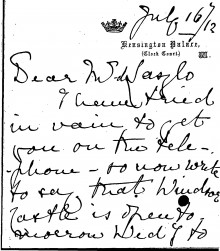 July 16/12
Kensington Palace,
(Clock Court)
W.
Dear Mr Laszlo
I have tried
in vain to get
you on the tele-
phone - so now write
to say that Windsor
Castle is open to
morrow Wed y to